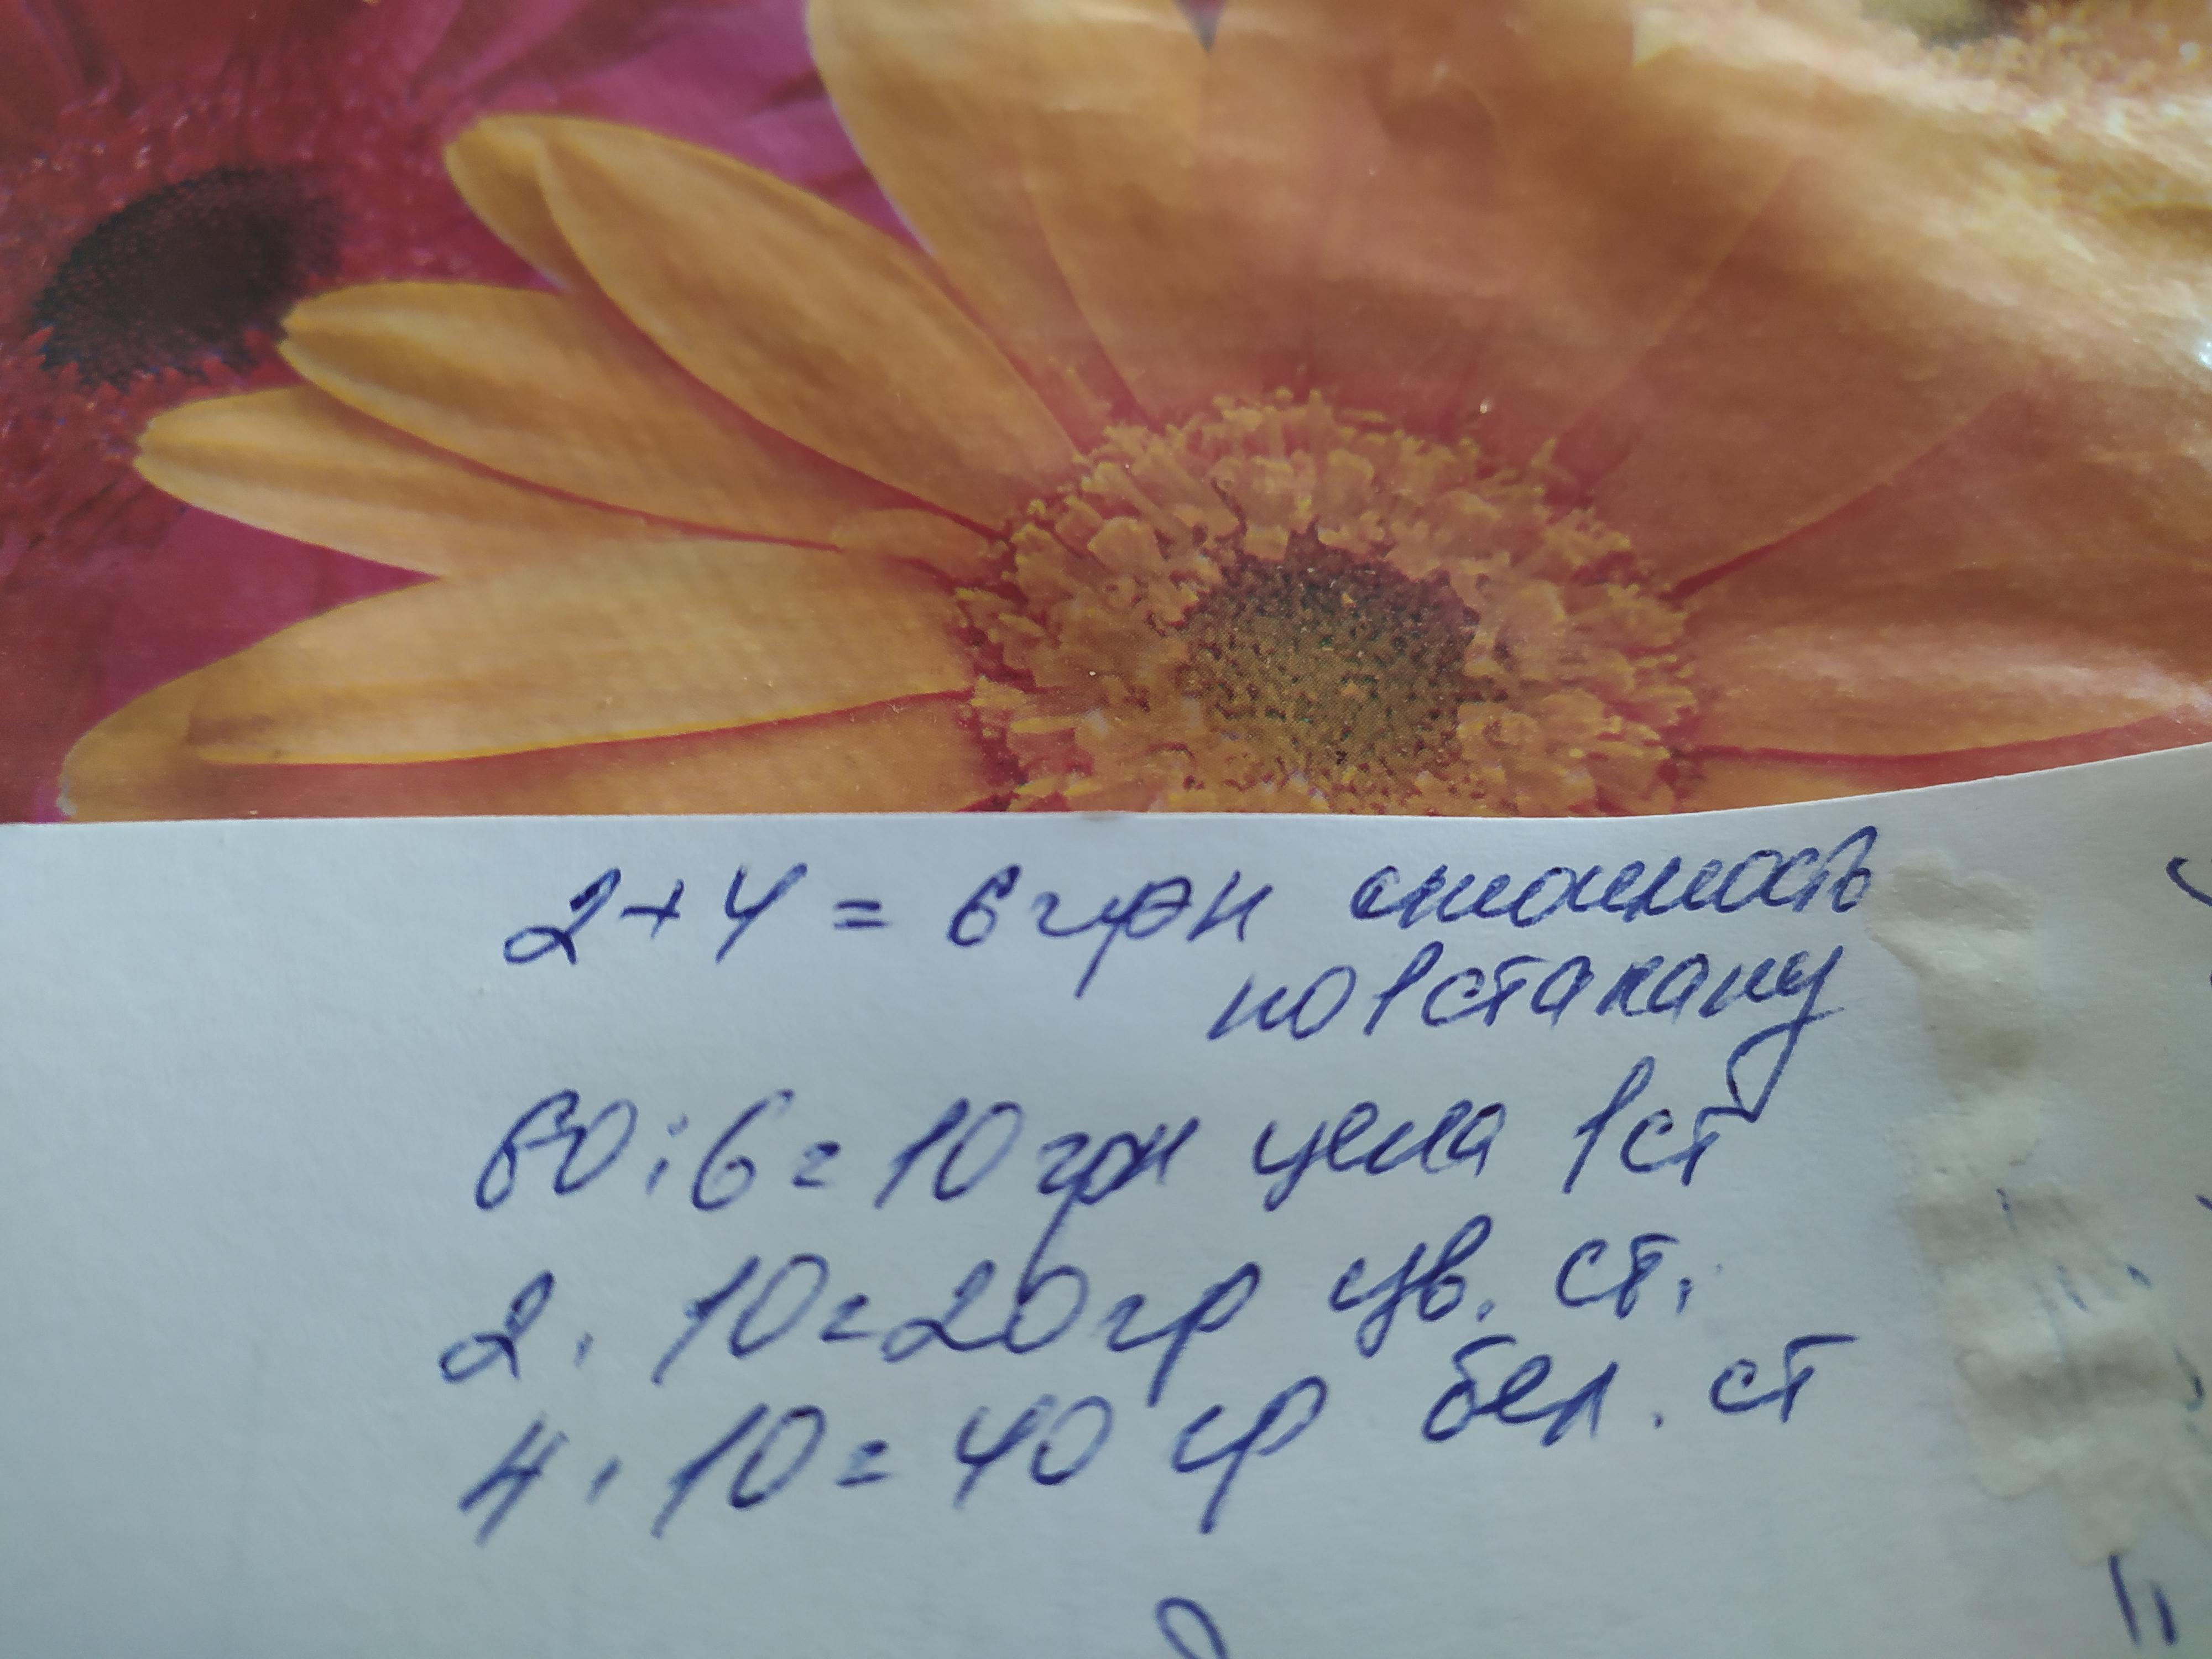 2+4 = 6 грн стоимость
по 1 стакану
60:6=10 грн цена 1 ст
2. 10=20 гр цв. ст.
4. 10=40 гр бел. ст